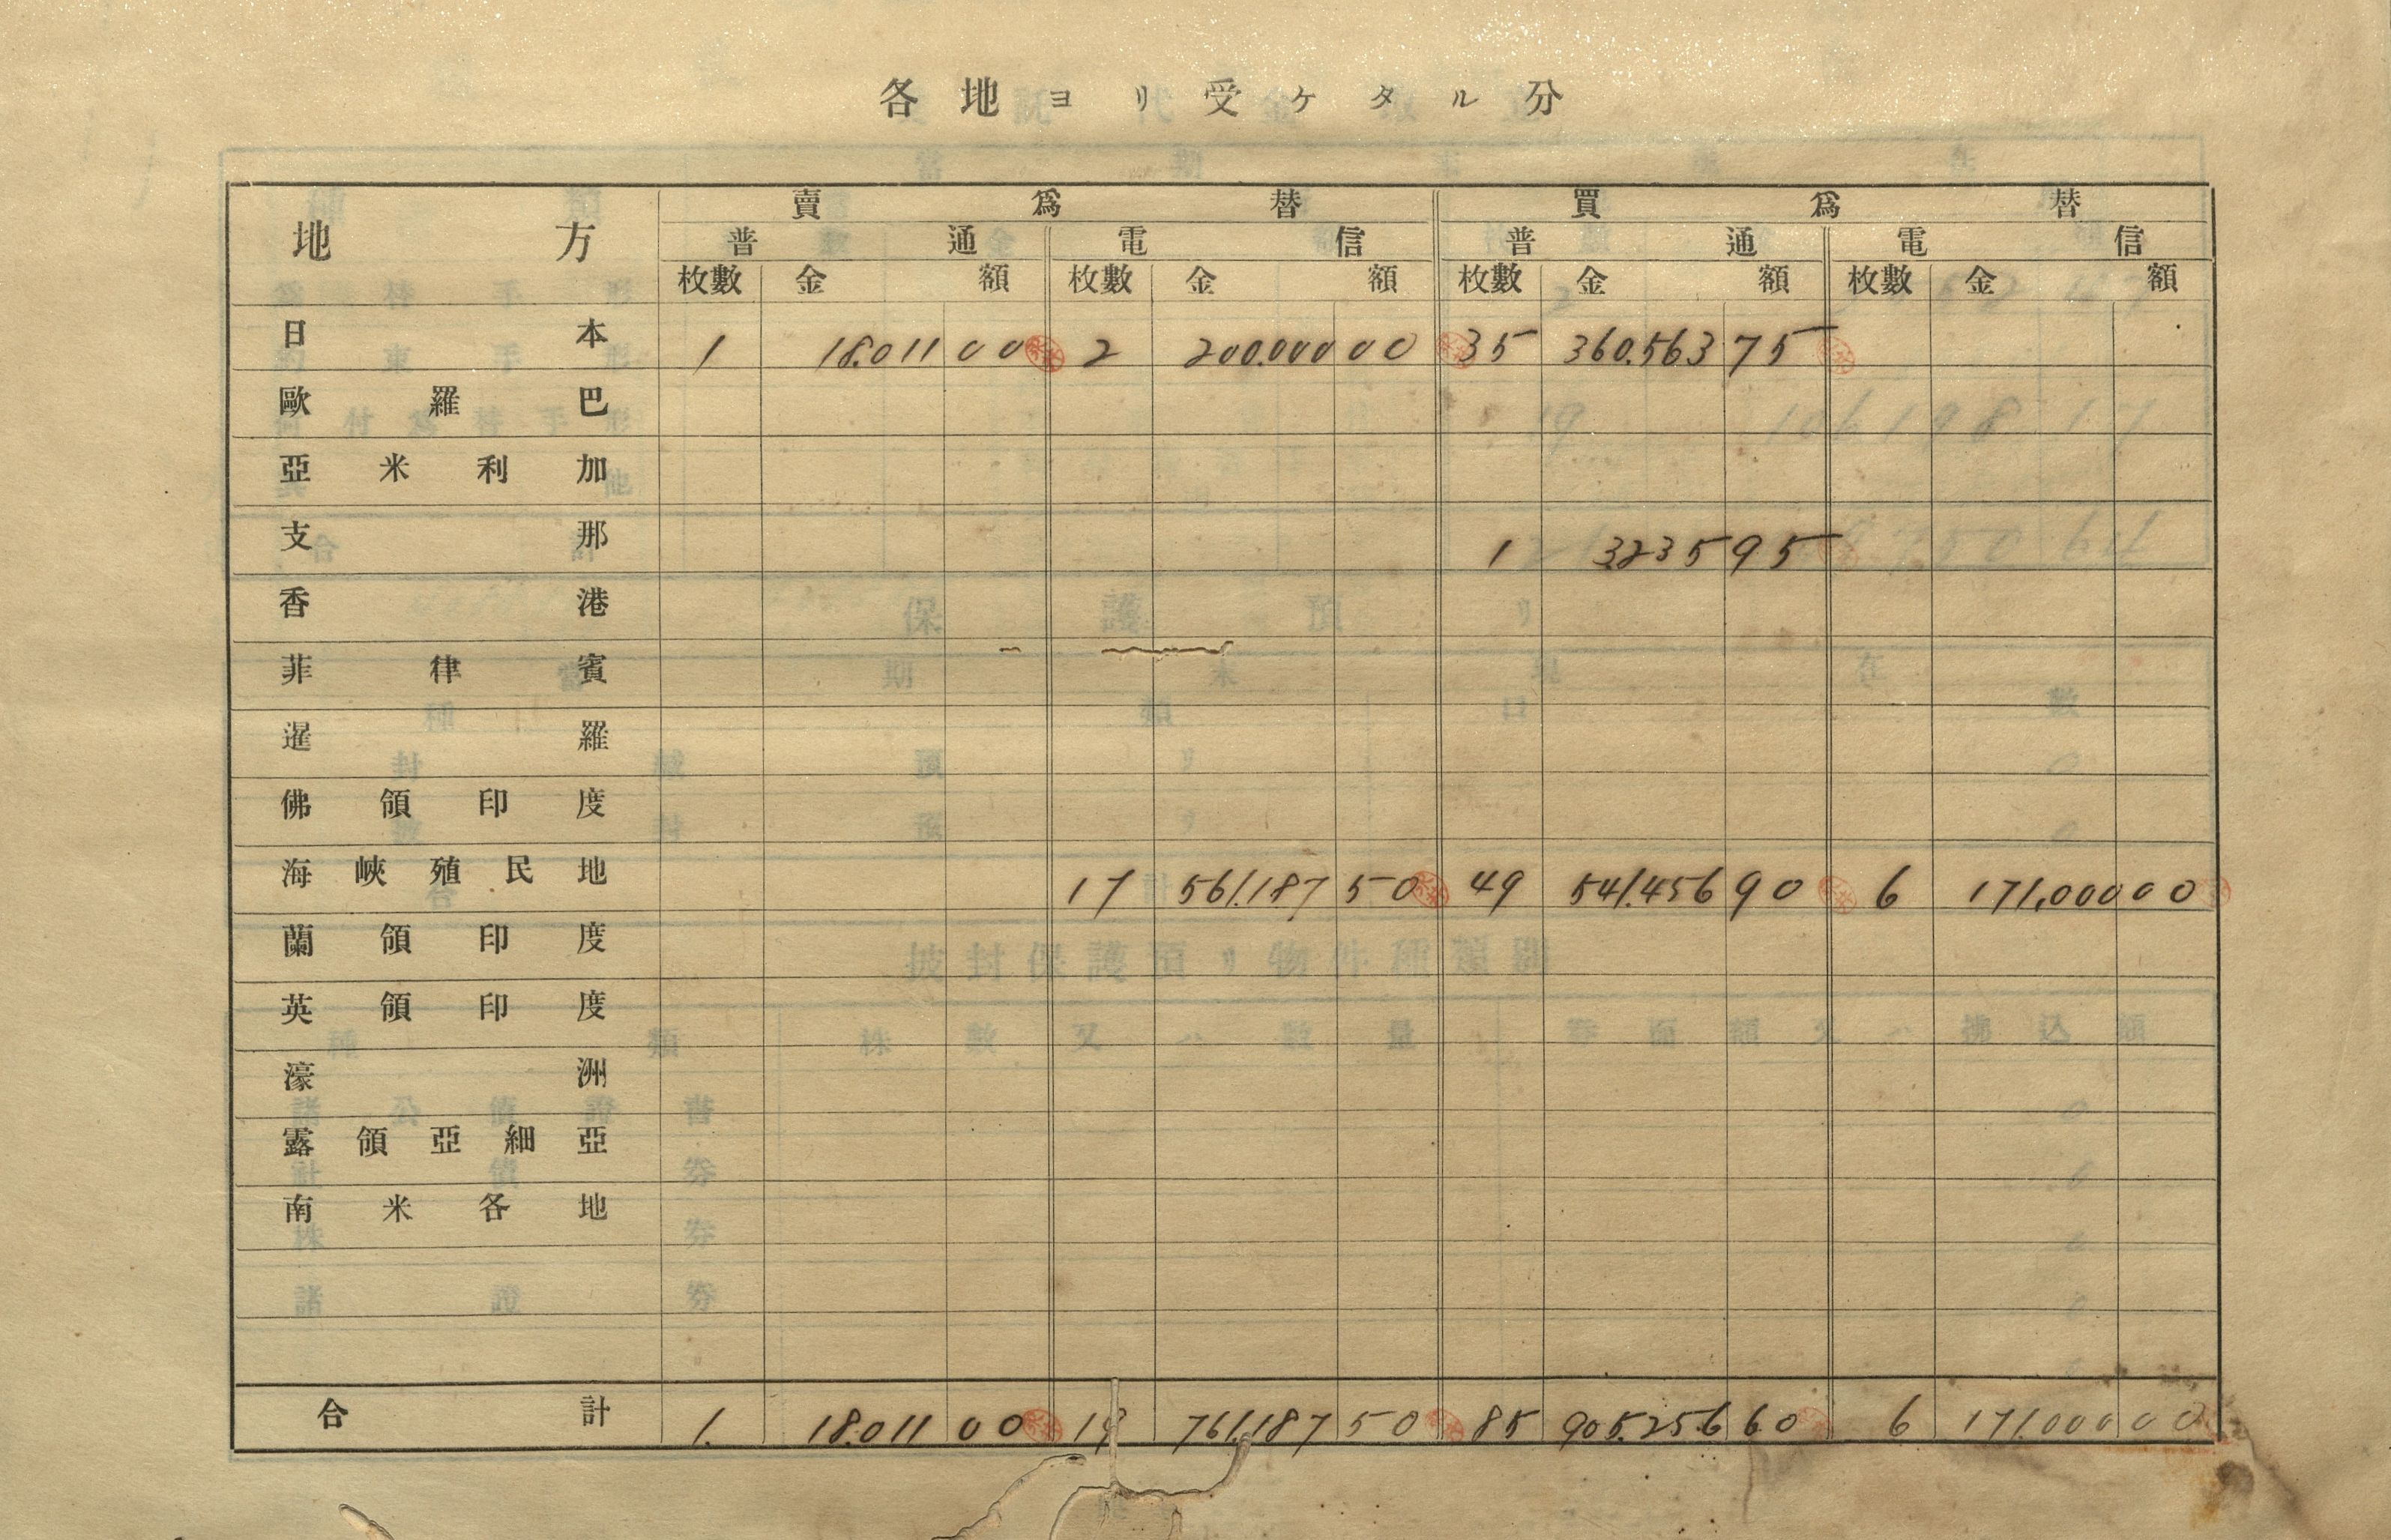 各地ヨリ受ケタル分
地方 賣爲替 買爲替
普通 電信 普通 電信
枚數 金額 枚數 金額 枚數 金額 枚數 金額
日本 1 18.011 00 2 200.000 00 35 360.563 75
歐羅巴
亞米利加
支那 1 3.235 95
香港
菲律賓
暹羅
佛領印度
海峽殖民地 17 561.187 50 49 541.456 90 6 171.000 00
蘭領印度
英領印度
濠洲
露領亞細亞
南米各地
合計 1. 18.011 00 19 761.187 50 85 905.256 60 6 171.000 00